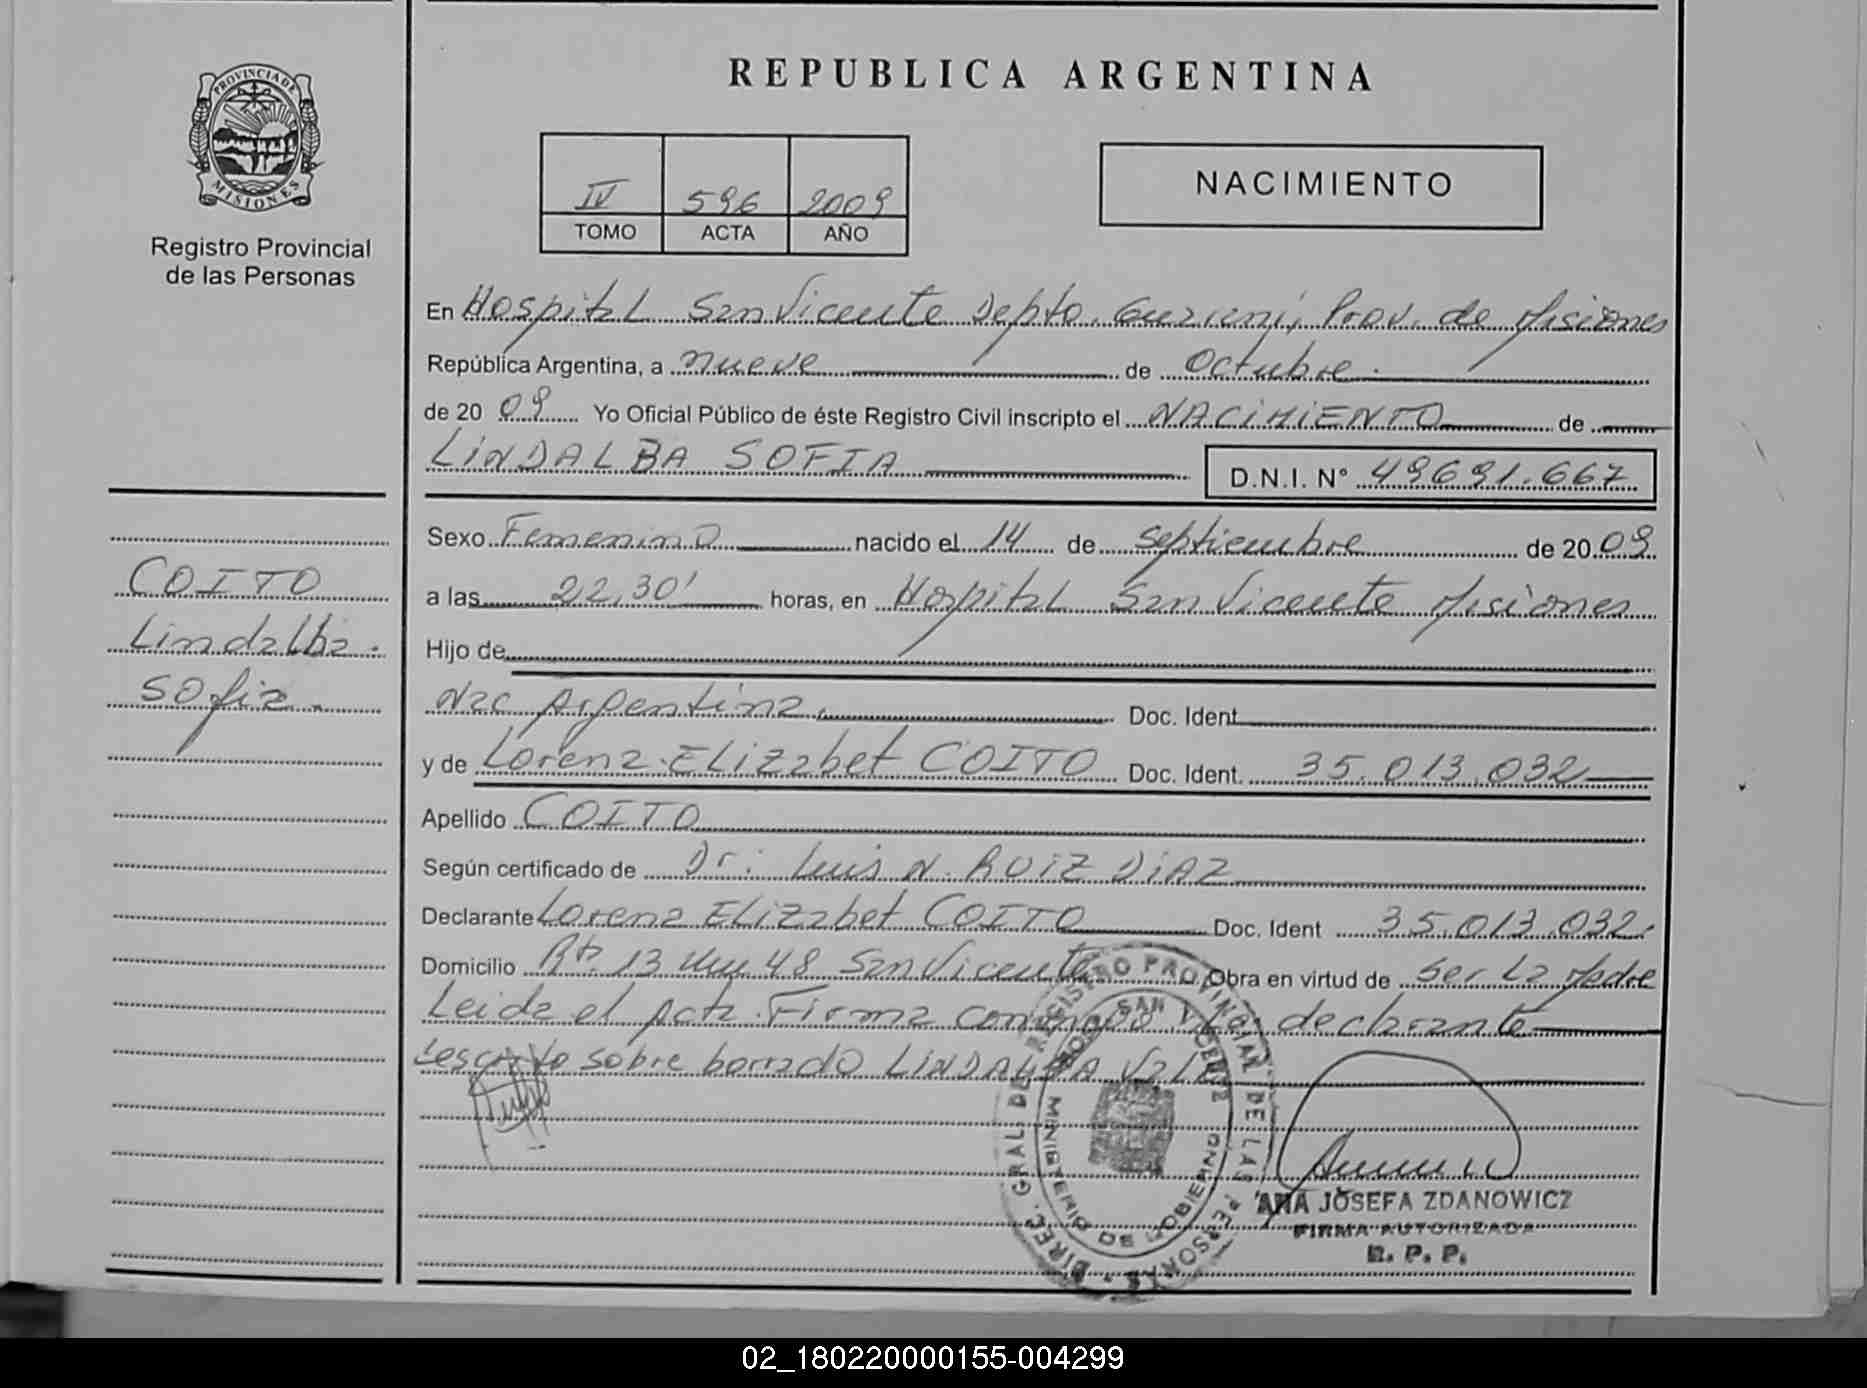 PROVINCIA DE
MISIONES
Registro Provincial
de las Personas
COITO
Lindalba
Sofia
REPUBLICA ARGENTINA
IV 596 2009
TOMO ACTA AÑO
NACIMIENTO
En Hospital San Vicente Depto. Guarani, Prov. de Misiones
República Argentina, a nueve de Octubre
de 2009 Yo Oficial Público de éste Registro Civil inscripto el NACIMIENTO de
LINDALBA SOFIA D.N.I. N° 49691.667
Sexo Femenino nacido el 14 de septiembre de 2009
a las 22,30' horas, en Hospital San Vicente Misiones
Hijo de
Nac Argentina. Doc. Ident
y de Lorena Elizabet COITO Doc. Ident. 35.013.032
Apellido COITO
Según certificado de Dr: Luis N. RUIZ DIAZ
Declarante Lorena Elizabet COITO Doc. Ident 35.013.032.
Domicilio Rta. 13 Km 48 San Vicente Obra en virtud de Ser La Madre
Leida el acta Firma conmigo la declarante
sobre borrado LINDALBA Vale
DIREC. GRAL. DEL REGISTRO PROVINCIAL DE LAS PERSONAS
SAN VICENTE
MINISTERIO DE GOBIERNO
ANA JOSEFA ZDANOWICZ
FIRMA AUTORIZADA
R. P. P.
02_180220000155-004299